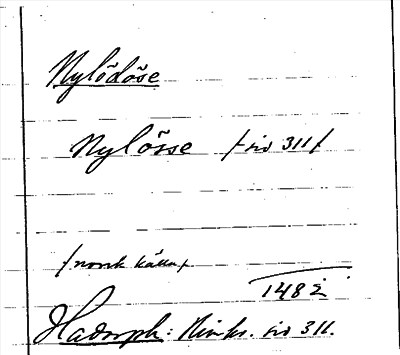 Nylödöse
Nylösse /sid 311/
/norsk källa/
1482
Hadorph: Rimkr. sid 311.